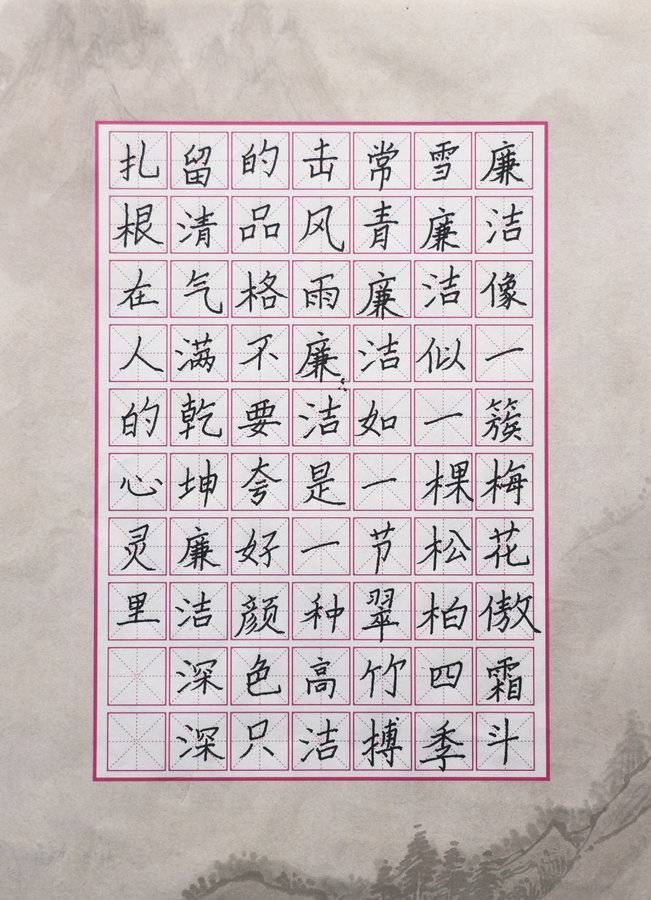 廉洁像一簇梅花傲霜斗
雪廉洁似一棵松柏四季
常青廉洁如一节翠竹搏
击风雨廉洁是一种高洁
的品格不要夸好颜色只
留清气满乾坤廉洁深深
扎根在人的心灵里